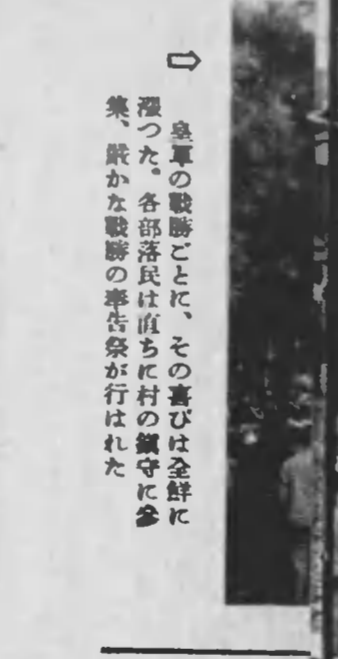 ⇨ 皇軍の戰勝ごとに、その喜びは全鮮に
漲つた。各部落民は直ちに村の鎭守に參
集、嚴かな戰勝の奉告祭が行はれた